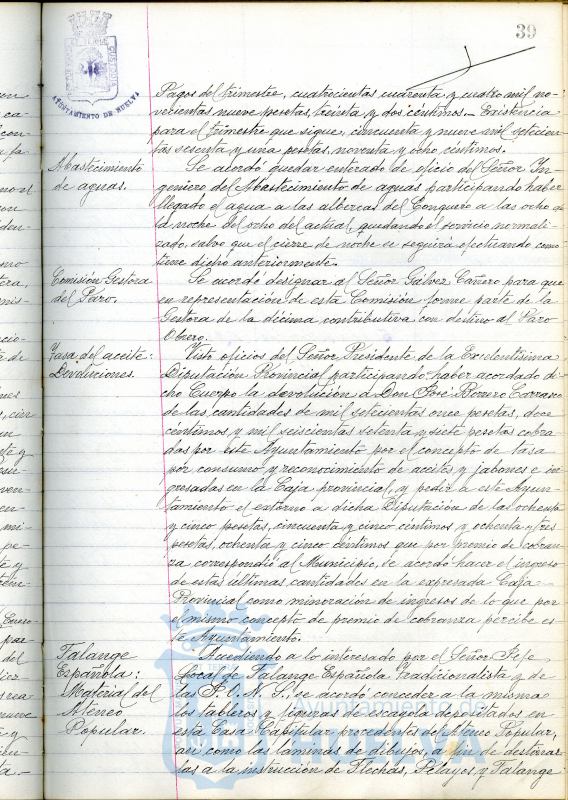 39
AYUNTAMIENTO DE HUELVA
Pagos del trimestre, cuatrocientas cuarenta y cuatro mil no-
vecientas nueve pesetas, treinta y dos céntimos.- Existencia
para el trimestre que sigue, cincuenta y nueve mil setecien-
tas sesenta y una pesetas, noventa y ocho céntimos.
Abastecimiento
de aguas.
Se acordó quedar enterado de oficio del Señor In-
geniero del Abastecimiento de aguas participando haber
llegado el agua a las albercas del Conquero a las ocho de
la noche del ocho del actual, quedando el servicio normali-
zado, salvo que el cierre de noche se seguirá efectuando como
tiene dicho anteriormente.
Comisión Gestora
del Paro.
Se acordó designar al Señor Gálvez Cañero para que
en representación de esta Comisión forme parte de la
Gestora de la décima contributiva con destino al Paro
Obrero.
Tasa del aceite:
Devoluciones.
Visto oficios del Señor Presidente de la Excelentísima
Diputación Provincial participando haber acordado di-
cho Cuerpo la devolución a Don José Romero Carrasco
de las cantidades de mil setecientas once pesetas, doce
céntimos y mil seiscientas setenta y siete pesetas cobra-
das por este Ayuntamiento por el concepto de tasa
por consumo y reconocimiento de aceites y jabones e in-
gresadas en la Caja provincial, y pedir a este Ayun-
tamiento el retorno a dicha Diputación de las ochenta
y cinco pesetas, cincuenta y cinco céntimos y ochenta y tres
pesetas, ochenta y cinco céntimos que por premio de cobran-
za correspondió al Municipio, se acordó hacer el ingreso
de estas últimas cantidades en la expresada Caja
Provincial como minoración de ingresos de lo que por
el mismo concepto de premio de cobranza percibe es-
te Ayuntamiento.
Falange
Española:
Material del
Ateneo
Popular.
Accediendo a lo interesado por el Señor Jefe
Local de Falange Española Tradicionalista y de
las J.O.N.S., se acordó conceder a la misma
los tableros y figuras de escayola depositadas en
esta Casa Capitular procedentes del Ateneo Popular,
así como las láminas de dibujos, a fin de destinar-
las a la instrucción de Flechas, Pelayos y Falange
Ayuntamiento de
HUELVA